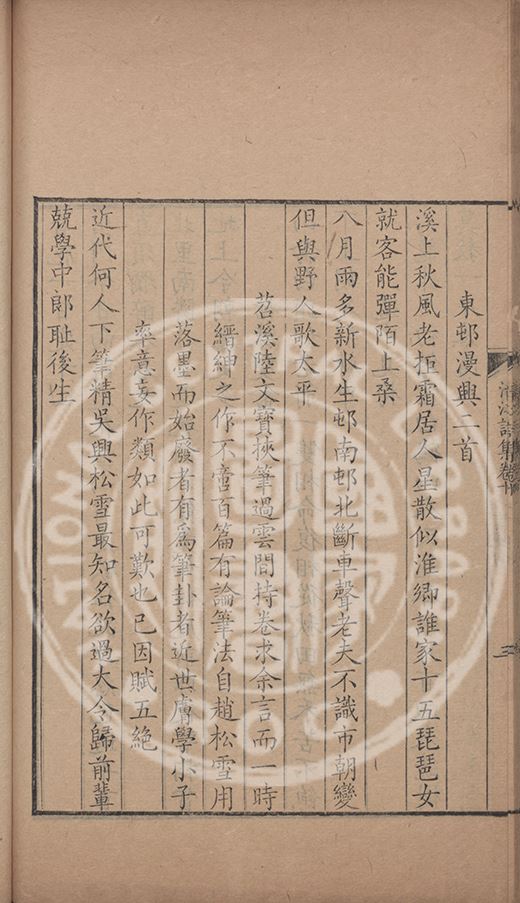 東邨漫興二首
溪上秋風老拒霜居人星散似淮鄉誰家十五琵琶女
就客能彈陌上桑
八月雨多新水生邨南邨北斷車聲老夫不識市朝變
但與野人歌太平
苕溪陸文寶挾筆過雲間持卷求余言而一時
縉紳之作不啻百篇有論筆法自趙松雪用
落墨而始廢者有為筆卦者近世膚學小子
率意妄作類如此可歎也已因賦五絶
近代何人下筆精吳興松雪最知名欲過大令歸前輩
兢學中郎耻後生